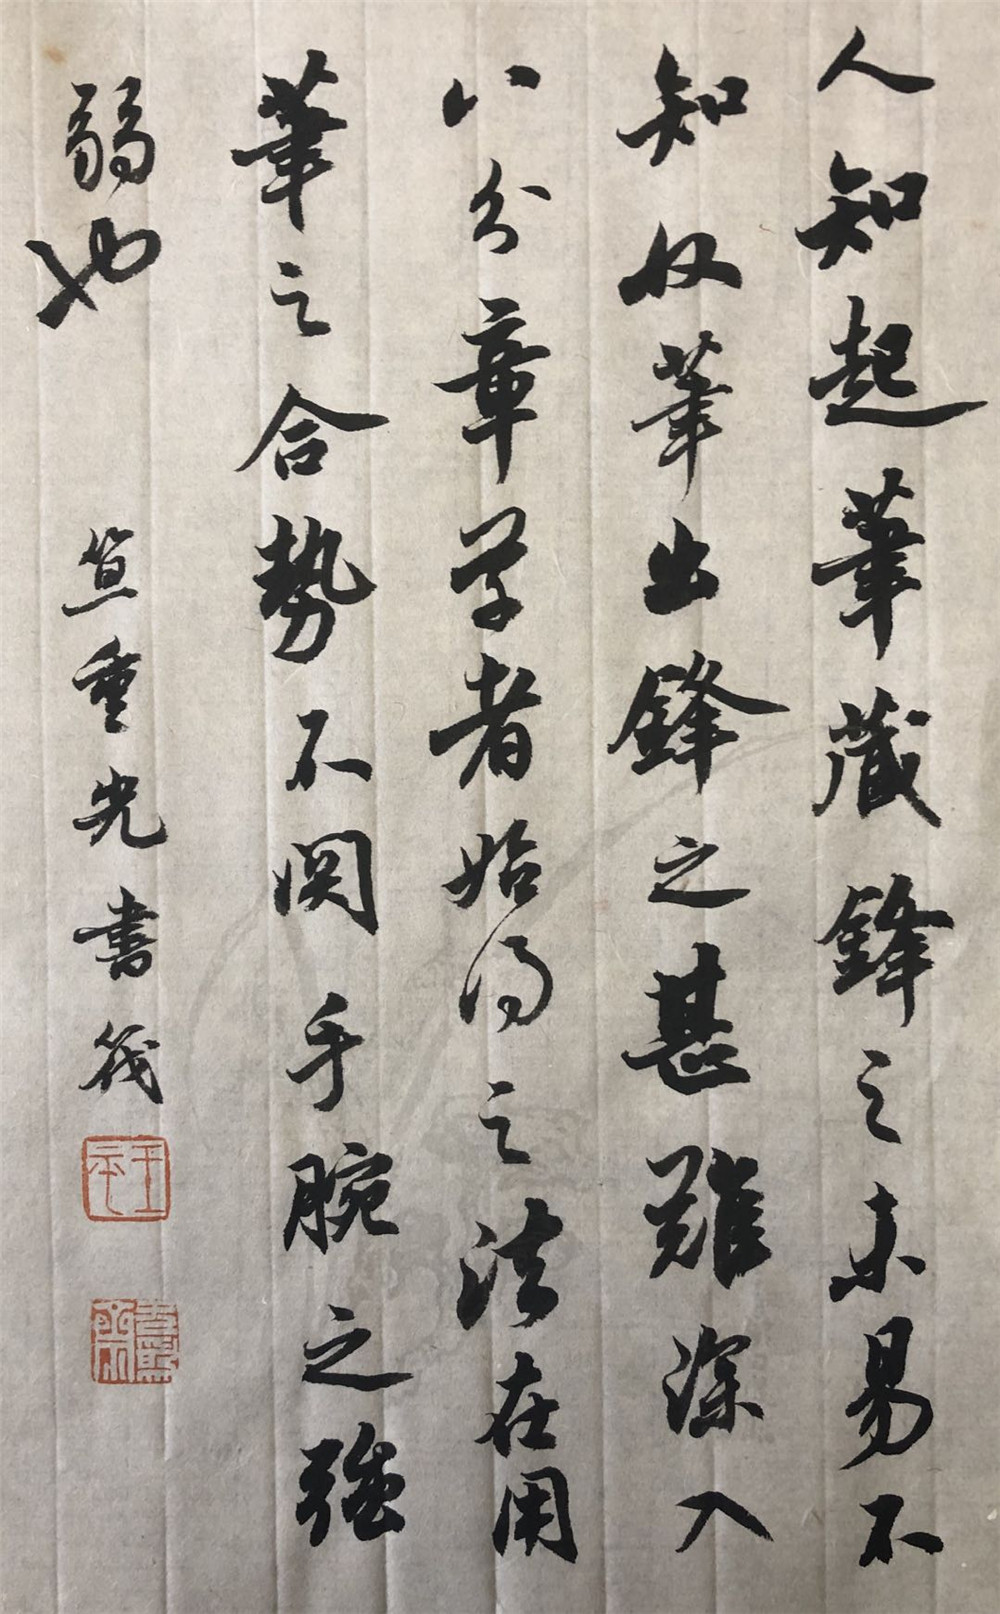 人知起筆藏鋒之未易不
知收筆出鋒之甚難深入
八分章草者始得之法在用
筆之合勢不関手腕之強
弱也
笪重光書筏